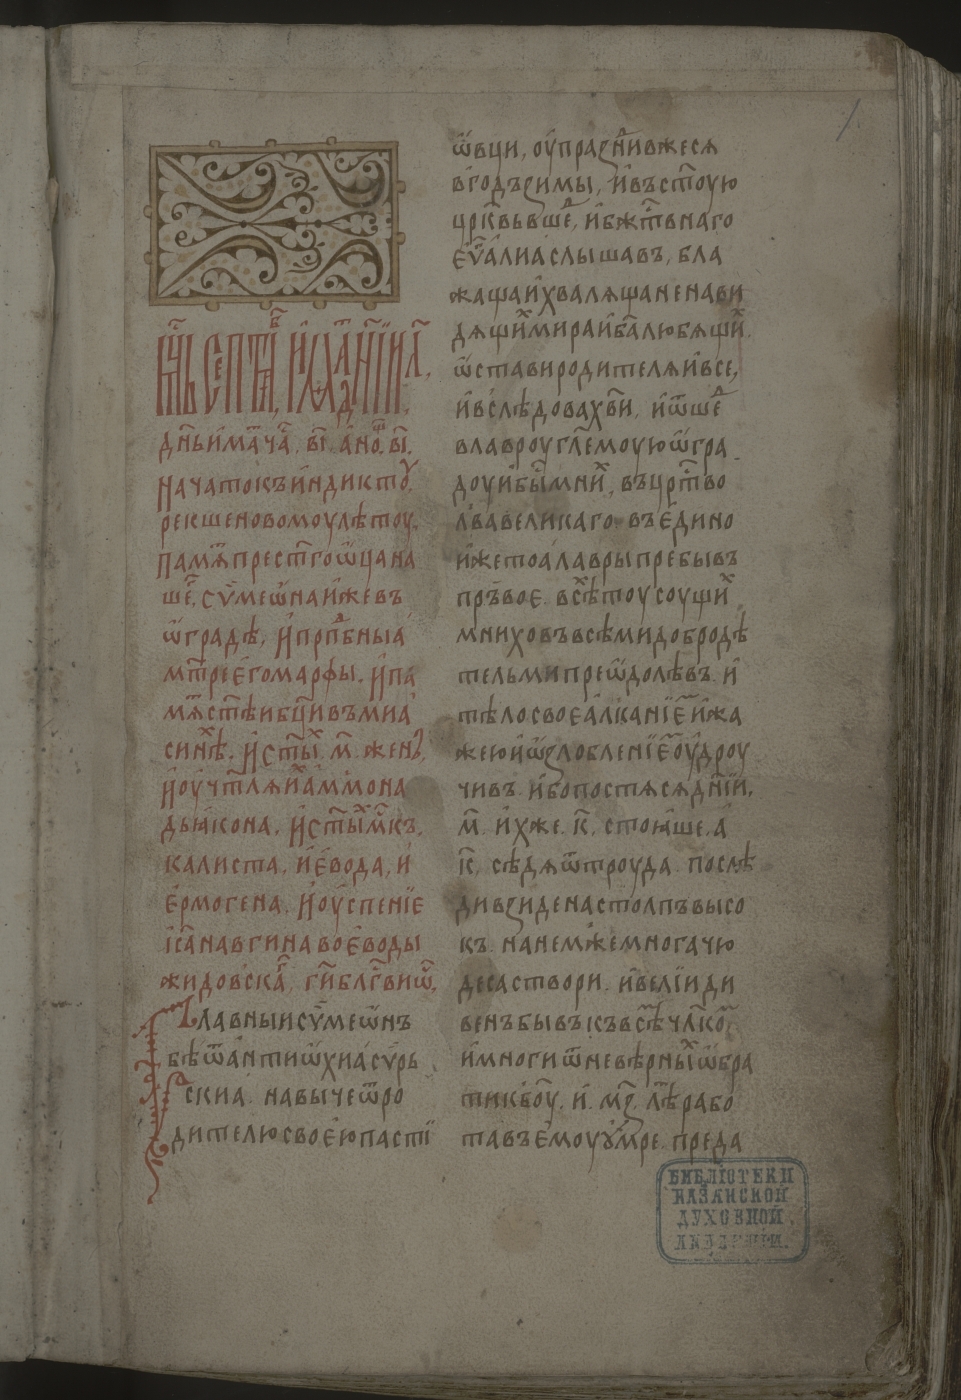 дн҃ьи́ма҆́ча҆̑. в҃і. а҆́но́щ. в҃і.
начатокъи҆ндикто́у.
рекшеновомоулѣтоу.
пама҆̑прест҃гоѿцана
ше̑. сѵ́мео҆наи҆жевъ
ѿградѣ, и҆прп҃бныа҆
мт҃рее҆гомарѳы. и҆па
мѧ̑ст҃ѣибц҃ивъмиа҆
синѣ̑. и҆ст҃ы̑. м҃. жено́у,
и҆оу҆чт҃лѧи҆а҆ммона
дьꙗкона. и҆ст҃ы̑мч҃къ.
калиста. и҆е҆вода, и҆
е҆рмогена. и҆оу҆спенїе
іс҃анавгинавоеводы
жидовска̑, гл҃иблг҃виѿ.
Славныисѵ́мео҆нъ
бѣѿа҆нтио҆хиа҆сѵ́рь
скиа҆. навычеѿро
дителюсвоею҆пасті
о҆вци, оу҆празни̑вжесѧ
вгодъзимы, и҆въст҃оую
црк҃вьвше̑, и҆бжт҃внаго
е҆ѵ҃алиаслышавъ, бла
жащаи҆хвалѧщаненави
дѧщи̑мираи҆б҃алюбѧщи̑.
о҆ставиродителѧи҆все,
и҆вслѣдовахв҃и, и҆ѿше̑
влавроуглем҃оуюѿгра
доуи҆бы̑мни̑, въцрт҃во
лвавеликаго. въе҆дино
и҆жетоалаврыпребывъ
пръ́вое. всѣ̑тоусоущи̑
мниховъвсѣмидобродѣ
тельмипрео҆долѣвъ. и҆
тѣлосвоеа҆лканіе̑и҆жа
жеюи҆ѡ҆злобленїе̑оу҆дроу
чивъ. и҆бопостѧсѧдн҃їи,
м҃. и҆хже. к҃. стоꙗше. а҆
к҃. сѣдѧѿтроуда. послѣ
дивзиденастолпъвысо
къ. нанемжемногачю
десаствори. и҆велїиди
венъбывъкъвсѣ̑чл҃ко̑
и҆многиѿневѣрны̑ѡ҆бра
тикбо҃у. и҆. мз҃. лѣ̑рабо
тавъе҆моуу҆мре. преда
БИБЛІОТЕКИ
КАЗАНСКОЙ
ДУХОВНОЙ
АКАДЕМІИ.